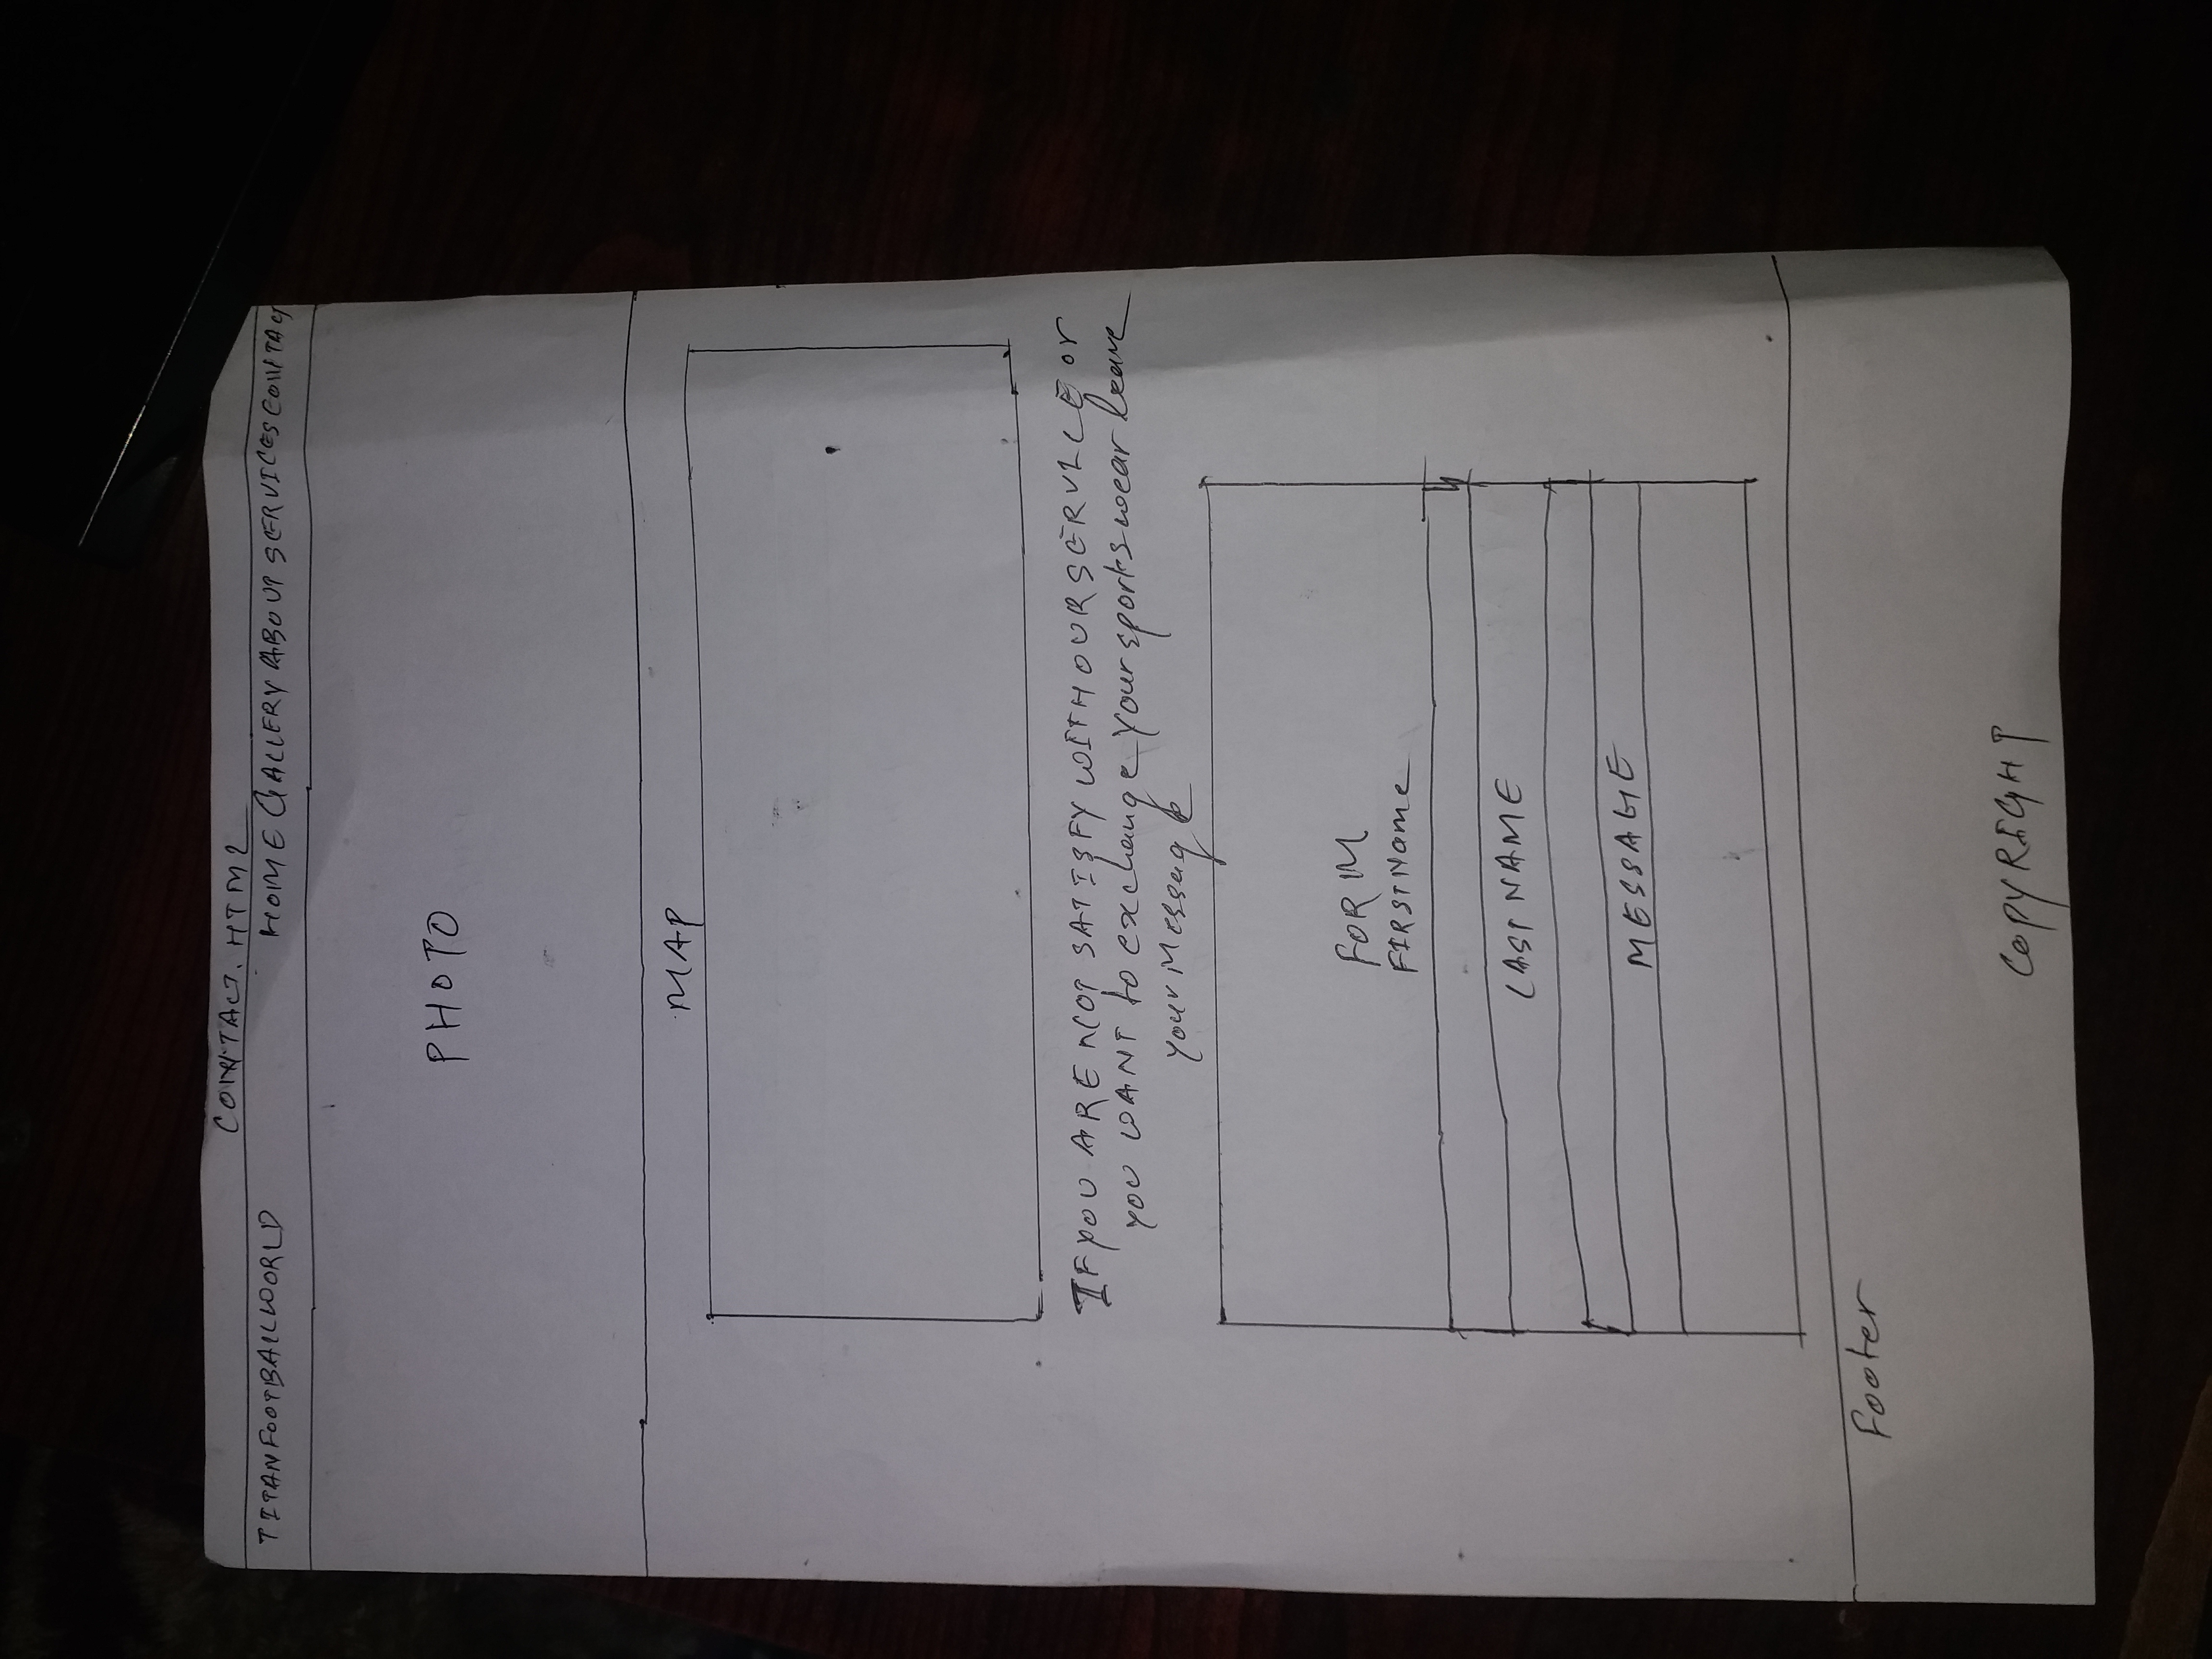 CONTACT. HTML
TITANFOOTBALLWORLD HOME GALLERY ABOUT SERVICES CONTACT
PHOTO
MAP
IF YOU ARE NOT SATISFY WITH OUR SERVICE or
YOU WANT to exchange Your sports wear leave
your Message
FORM
FIRST Name
LAST NAME
MESSAGE
Footer
COPYRIGHT